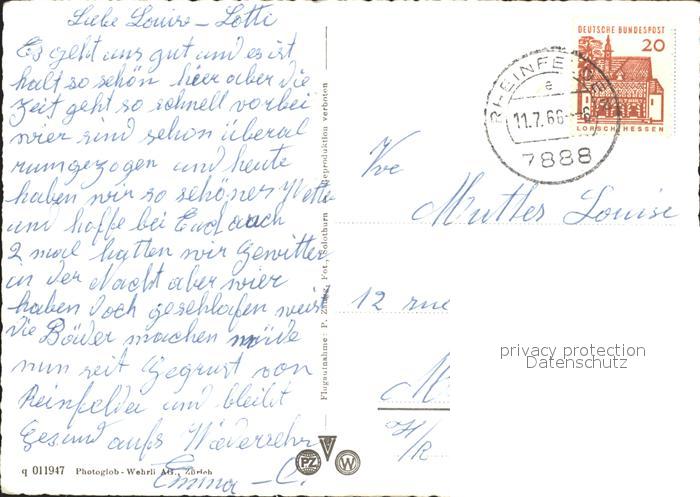 Liebe Louise - Lotti
Es geht uns gut und es ist
halt so schön hier aber die
Zeit geht so schnell vorbei
wier sind schon überal
rumgezogen und heute
haben wir so schönes Wetter
und hoffe bei Euch auch
2 mal hatten wir Gewitter
in der Nacht aber wier
haben doch geschlafen weist
die Bäder machen müde
nun seit Gegrust von
Reinfelden und bleibt
Gesund aufs Wiedersehn
Emma - C.
q 011947 Photoglob-Wehrli AG., Zürich
Flugaufnahme: P. Zaugg, Fot., Solothurn Reproduktion verboten
PZ
W
DEUTSCHE BUNDESPOST
20
LORSCH/HESSEN
RHEINFELDEN
e
11.7.66
7888
Vve
Muttes Louise
12 rue
M
H/R
privacy protection
Datenschutz